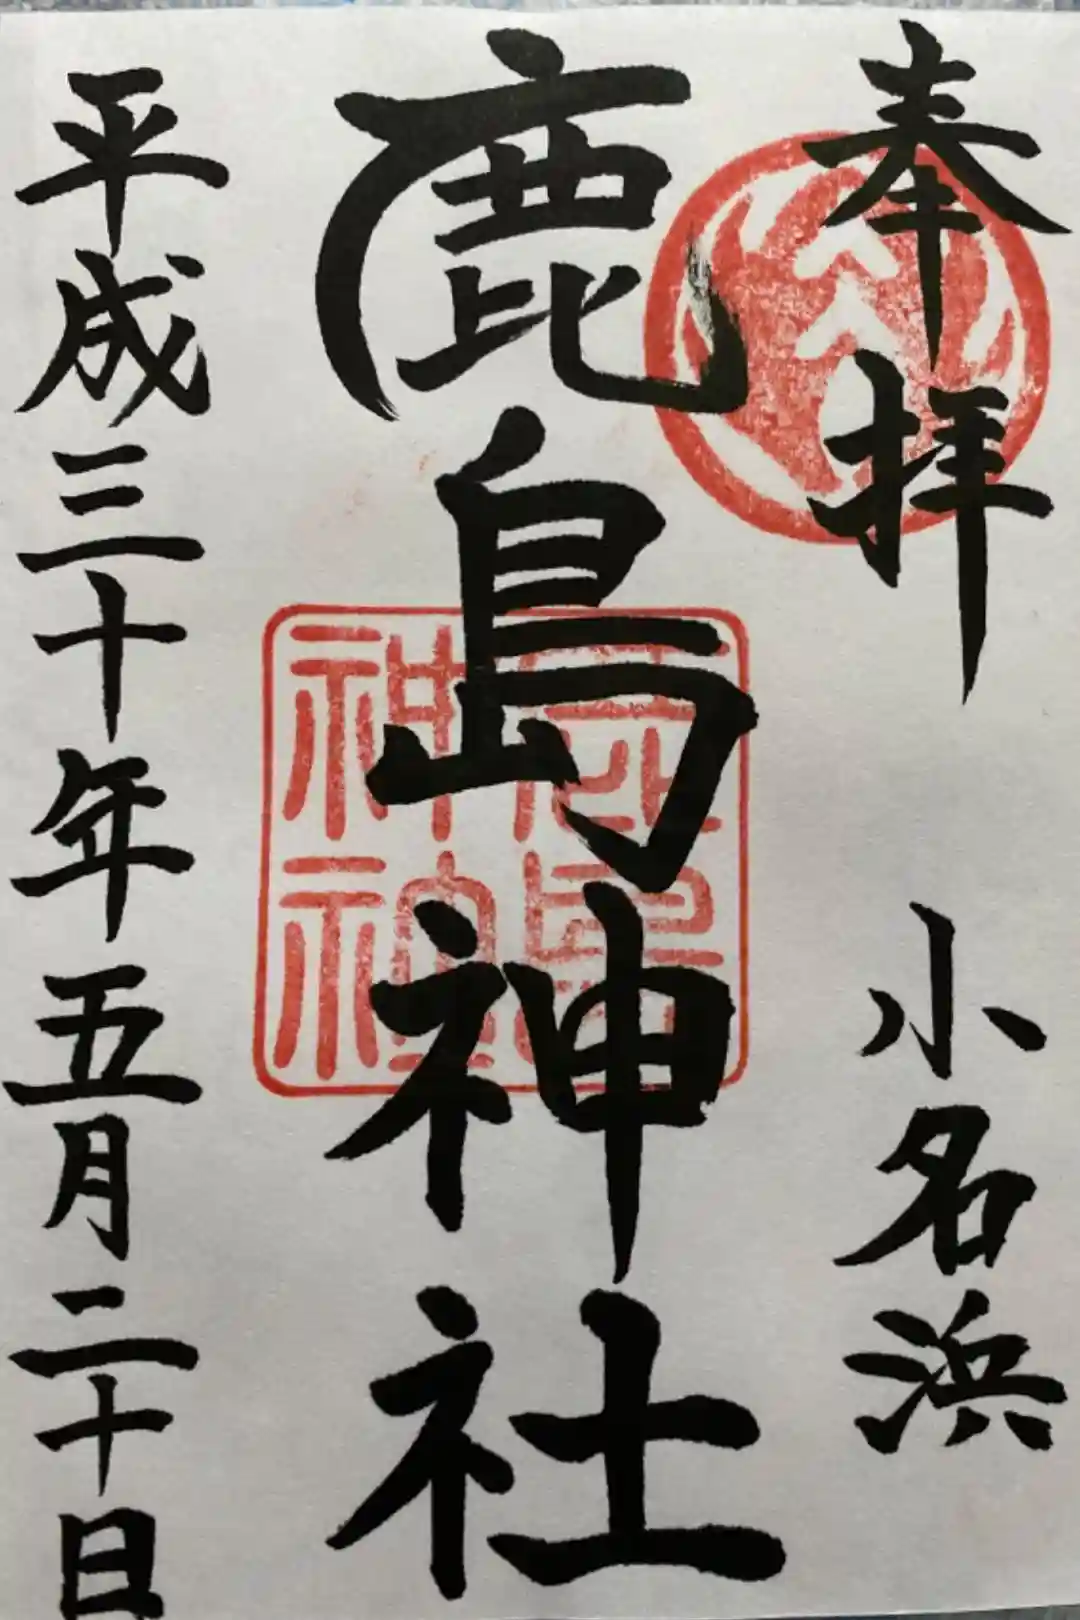 奉拝 小名浜
鹿島神社
平成三十年五月二十日